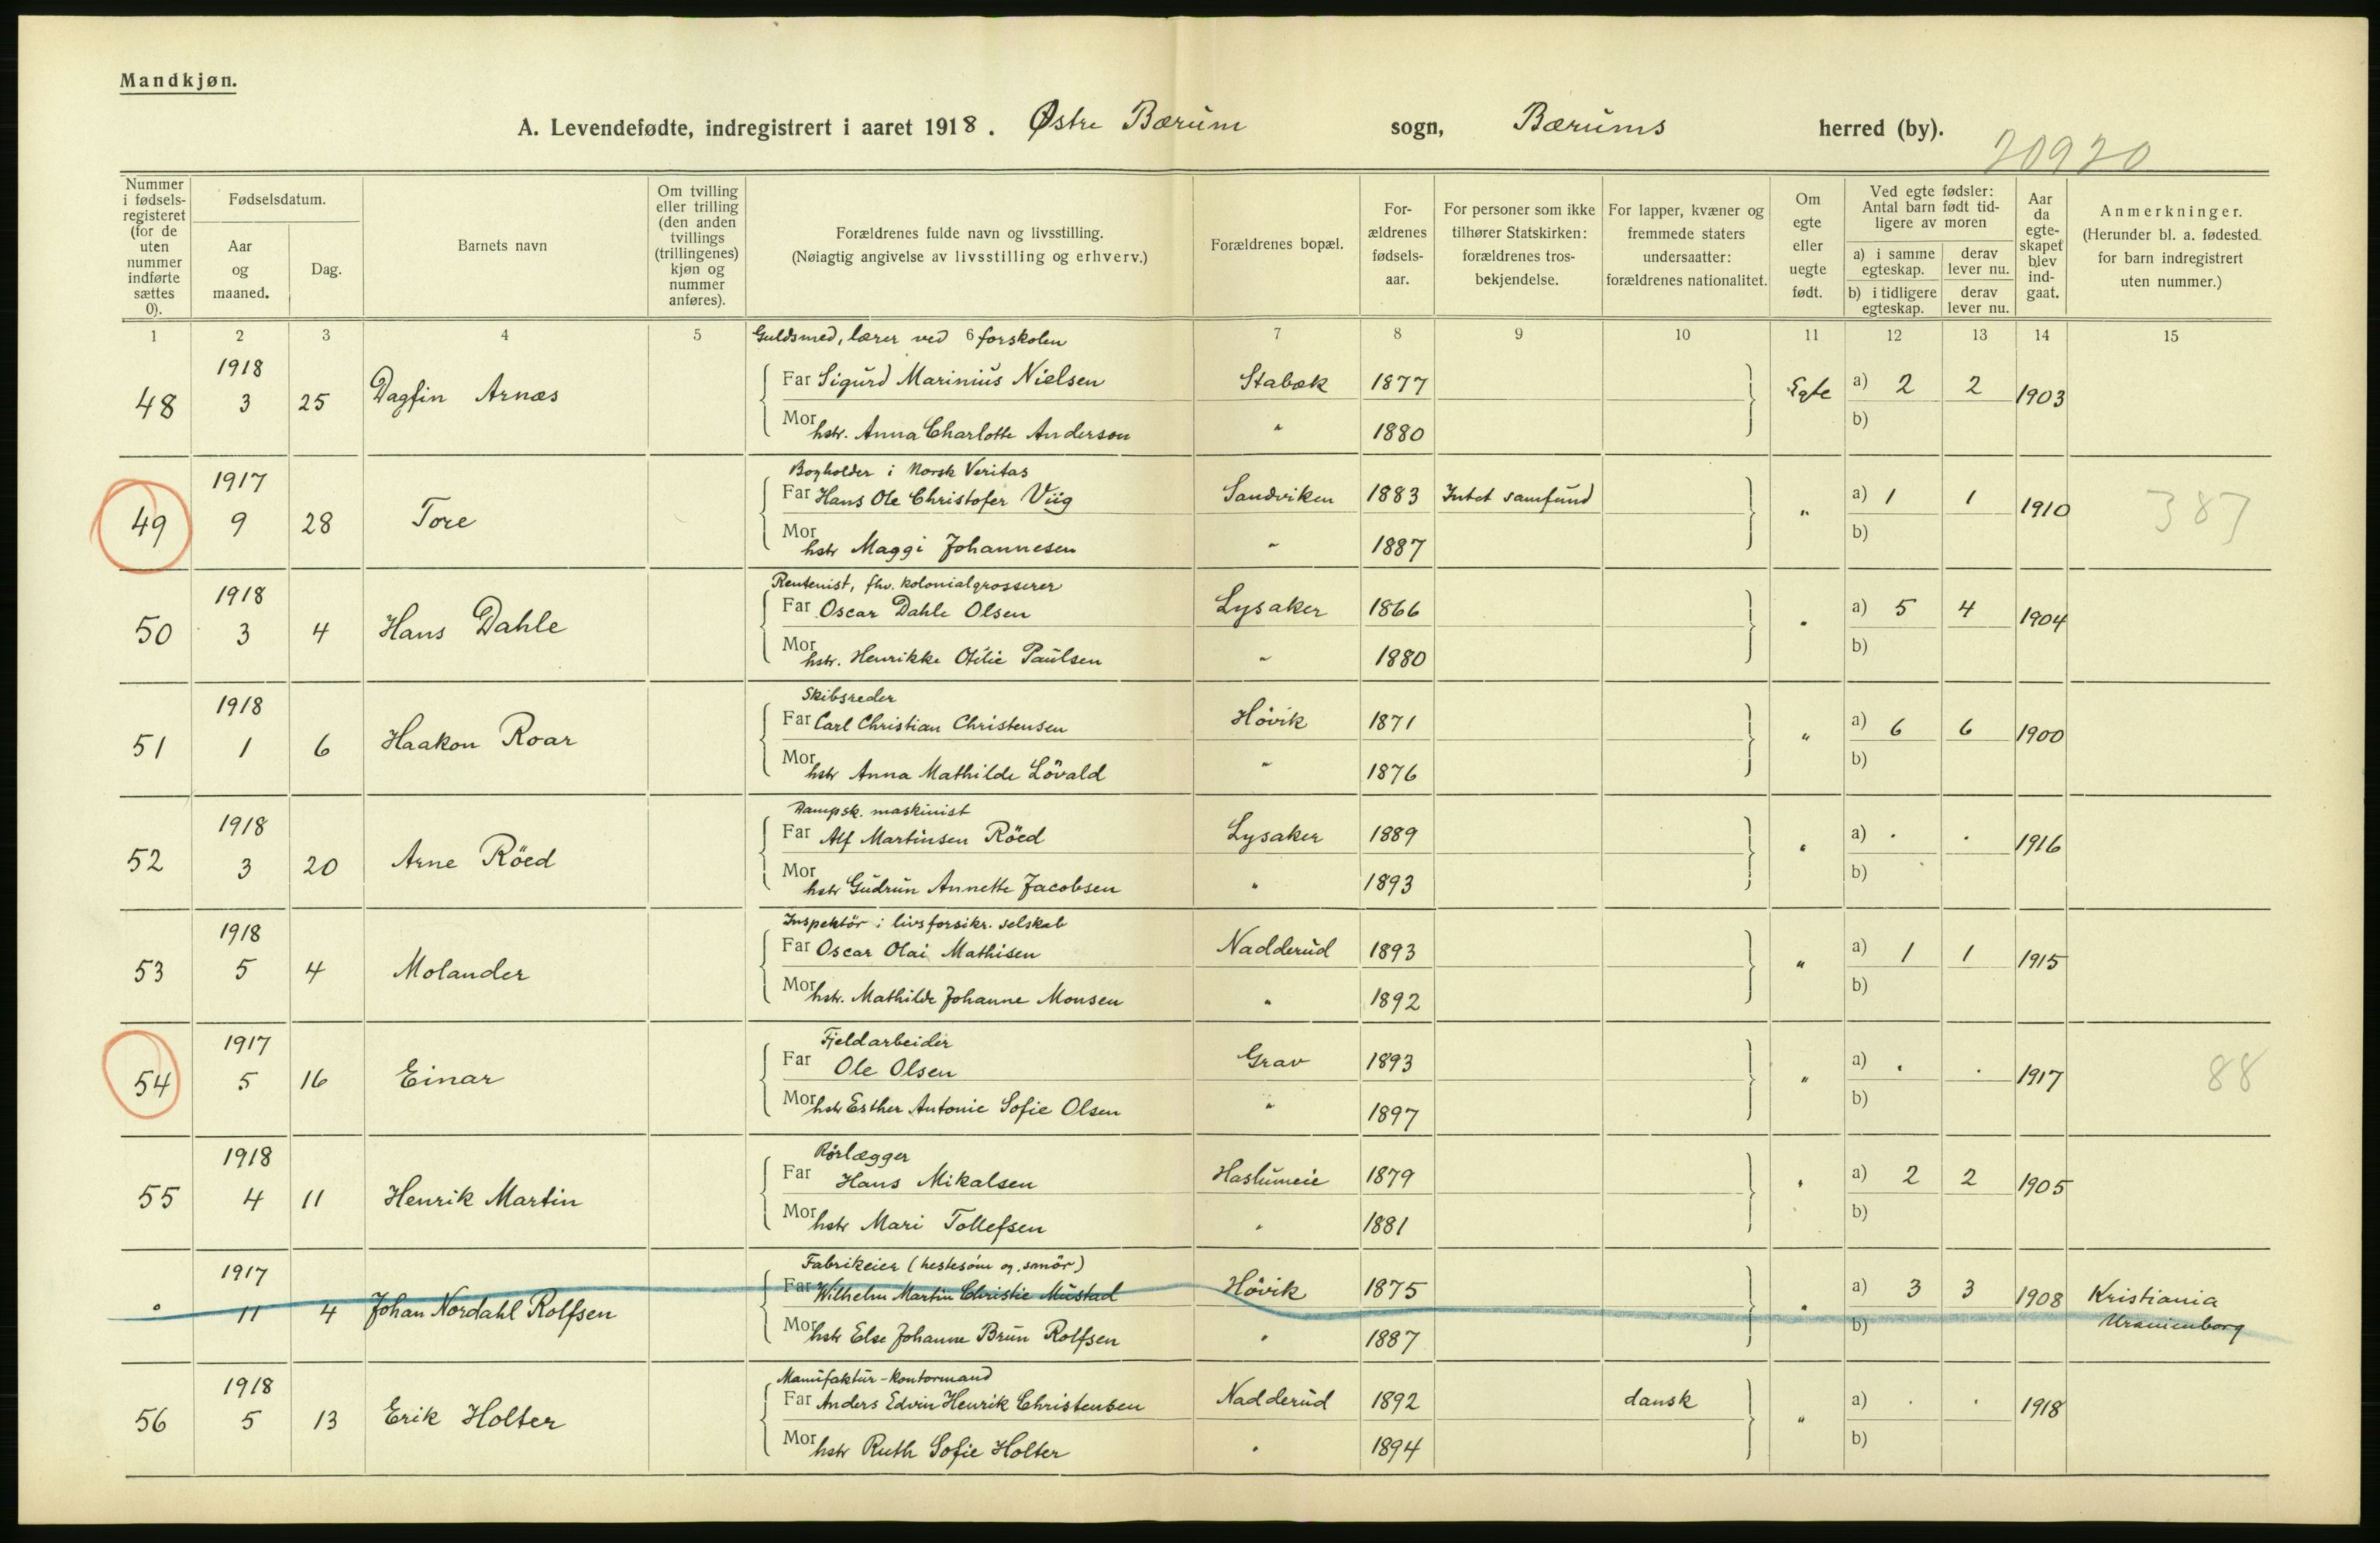 Mandkjøn.
A. Levendefødte, indregistrert i aaret 1918. Østre Bærum sogn, Bærums herred (by).
20920
Nummer i fødsels-registeret (for de uten nummer indførte sættes 0).
Fødselsdatum.
Aar og maaned.
Dag.
Barnets navn
Om tvilling eller trilling (den anden tvillings (trillingenes) kjøn og nummer anføres).
Forældrenes fulde navn og livsstilling.
(Nøiagtig angivelse av livsstilling og erhverv.)
Forældrenes bopæl.
For-ældrenes fødsels-aar.
For personer som ikke tilhører Statskirken: forældrenes tros-bekjendelse.
For lapper, kvæner og fremmede staters undersaatter: forældrenes nationalitet.
Om egte eller uegte født.
Ved egte fødsler: Antal barn født tid-ligere av moren
a) i samme egteskap.
derav lever nu.
b) i tidligere egteskap.
derav lever nu.
Aar da egte-skapet blev ind-gaat.
Anmerkninger.
(Herunder bl. a. fødested for barn indregistrert uten nummer.)
1 2 3 4 5 6 7 8 9 10 11 12 13 14 15
Guldsmed, lærer ved forskolen
48 1918 3 25 Dagfin Arnæs Far Sigurd Marinius Nielsen Stabæk 1877 Egte a) 2 2 1903
Mor hstr. Anna Charlotte Anderson " 1880 b)
Bogholder i Norsk Veritas
49 1917 9 28 Tore Far Hans Ole Christofer Viig Sandviken 1883 Intet samfund " a) 1 1 1910 387
Mor hstr Maggi Johannesen " 1887 b)
Rentenist, fhv. kolonialgrosserer
50 1918 3 4 Hans Dahle Far Oscar Dahle Olsen Lysaker 1866 " a) 5 4 1904
Mor hstr. Henrikke Otilie Paulsen " 1880 b)
Skibsreder
51 1918 1 6 Haakon Roar Far Carl Christian Christensen Hövik 1871 " a) 6 6 1900
Mor hstr Anna Mathilde Lövald " 1876 b)
Dampsk. maskinist
52 1918 3 20 Arne Röed Far Alf Martinsen Röed Lysaker 1889 " a) . . 1916
Mor hstr Gudrun Annette Jacobsen " 1893 b)
Inspektör i livsforsikr. selskab
53 1918 5 4 Molander Far Oscar Olai Mathisen Nadderud 1893 " a) 1 1 1915
Mor hstr. Mathilde Johanne Monsen " 1892 b)
Fjeldarbeider
54 1917 5 16 Einar Far Ole Olsen Grav 1893 " a) . . 1917 88
Mor hstr Esther Antonie Sofie Olsen " 1897 b)
Rörlægger
55 1918 4 11 Henrik Martin Far Hans Mikalsen Haslumeie 1879 " a) 2 2 1905
Mor hstr Mari Tollefsen " 1881 b)
Fabrikeier (hestesöm og smör)
0 1917 11 4 Johan Nordahl Rolfsen Far Wilhelm Martin Christie Mustad Hövik 1875 " a) 3 3 1908 Kristiania
Mor hstr Else Johanne Brun Rolfsen " 1887 b) Uranienborg
Manufaktur-kontormand
56 1918 5 13 Erik Holter Far Anders Edvin Henrik Christensen Nadderud 1892 dansk " a) . . 1918
Mor hstr Ruth Sofie Holter " 1894 b)